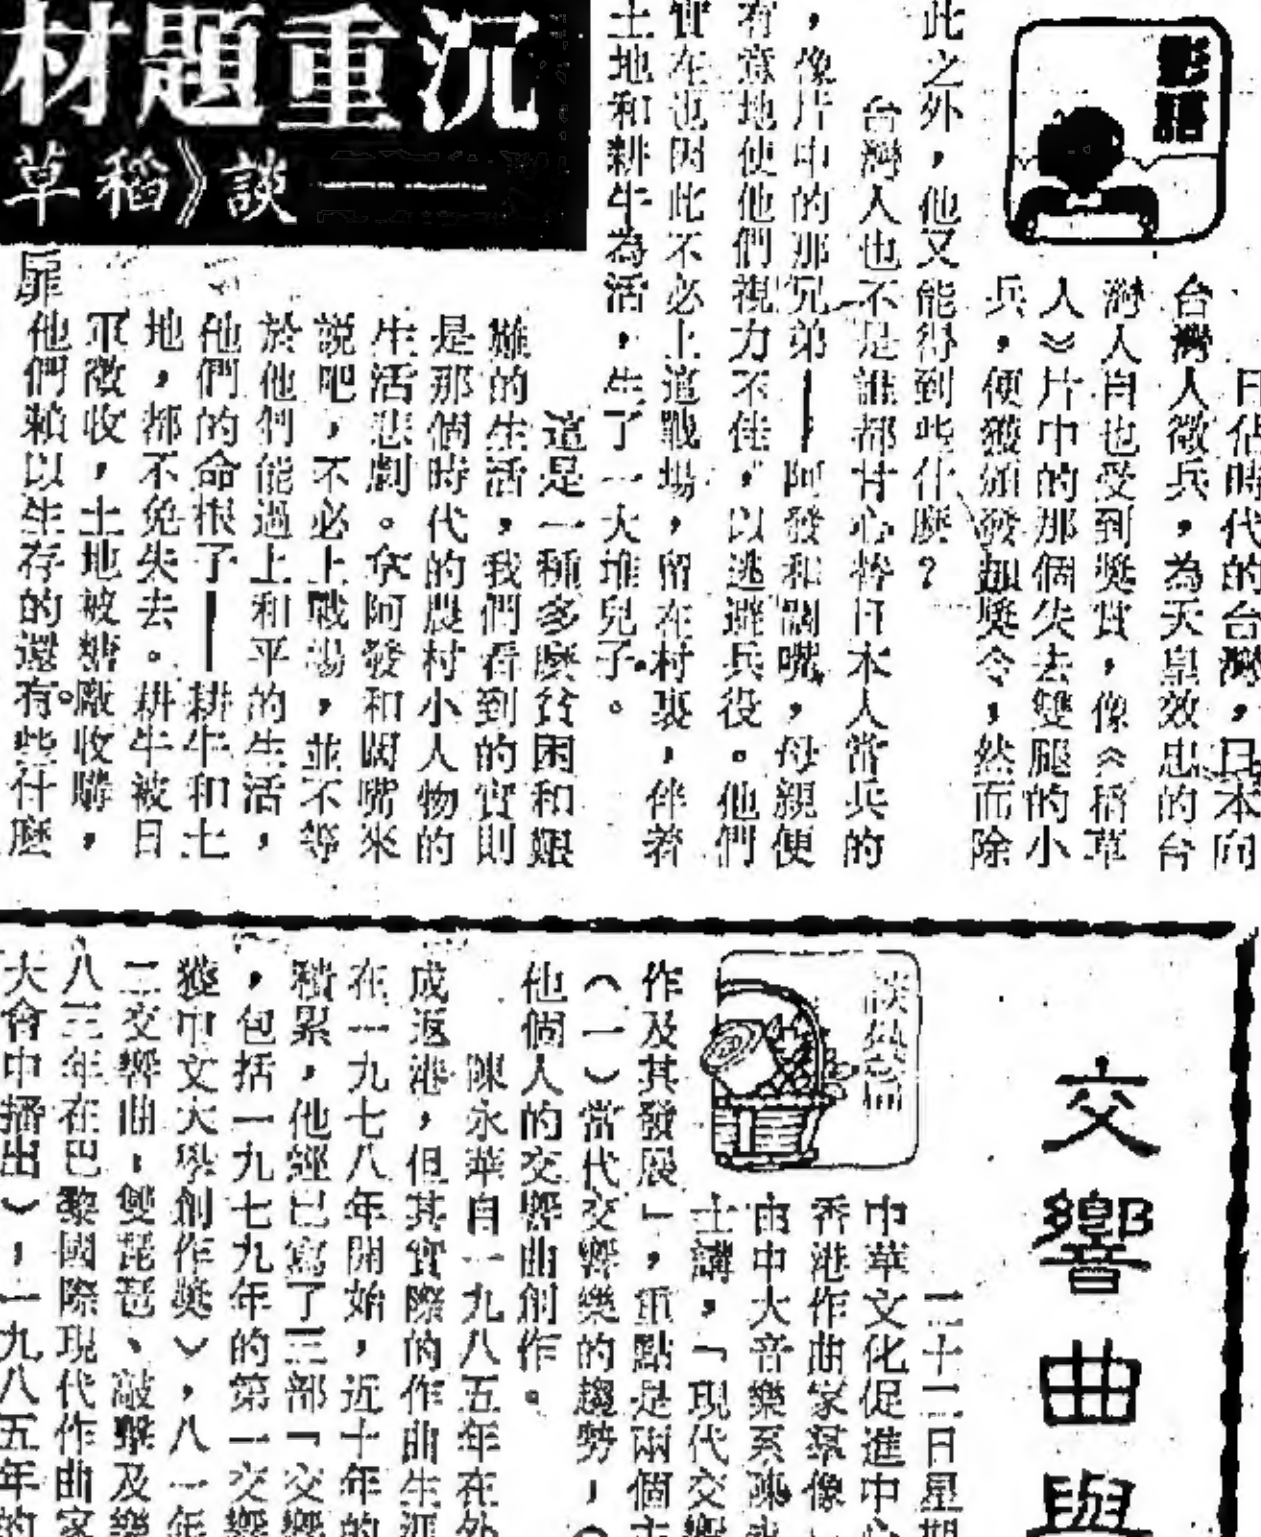 沉重題材
——談《稻草
影語
日佔時代的台灣,日本向
台灣人徵兵,為天皇效忠的台
灣人自也受到獎賞,像《稻草
人》片中的那個失去雙腿的小
兵,便獲頒發翅獎令,然而除
此之外,他又能得到些什麼?
台灣人也不是誰都甘心替日本人當兵的
,像片中的那兄弟——阿發和闊嘴,母親便
有意地使他們視力不佳,以逃避兵役。他們
實在也因此不必上這戰場,留在村裏,伴著
土地和耕牛為活,生了一大堆兒子。
這是一種多麼貧困和艱
難的生活,我們看到的實則
是那個時代的農村小人物的
生活悲劇。拿阿發和闊嘴來
說吧,不必上戰場,並不等
於他們能過上和平的生活,
他們的命根了——耕牛和土
地,都不免失去。耕牛被日
軍徵收,土地被糖廠收購,
他們賴以生存的還有些什麼
交響曲與
談藝圃
二十二日星期
中華文化促進中心
香港作曲家羣像
由中大音樂系陳永
士講,「現代交響
作及其發展」,重點是兩個
(一)當代交響樂的趨勢,
他個人的交響曲創作。
陳永華自一九八五年在外
成返港,但其實際的作曲生涯
在一九七八年開始,近十年的
積累,他經已寫了三部「交響
,包括一九七九年的第一交響
獲中文大學創作獎),八一年
二交響曲,雙琵琶、敲擊及樂
八三年在巴黎國際現代作曲家
大會中播出),一九八五年的